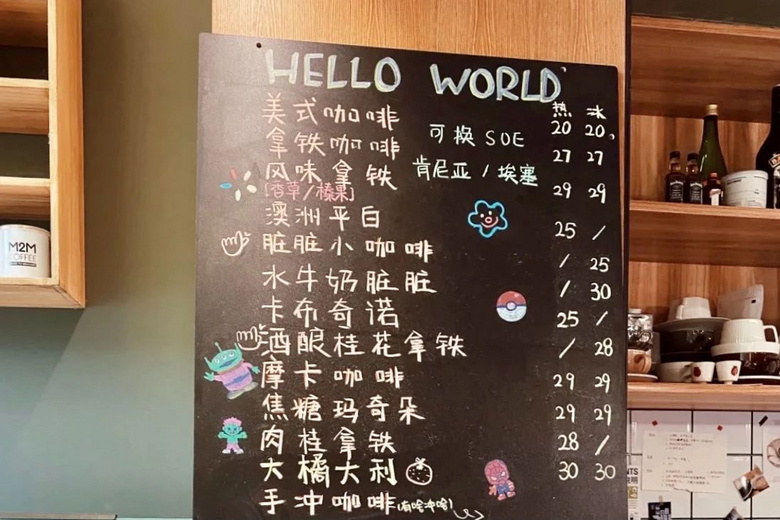 HELLO WORLD
热 冰
美式咖啡 20 20
可换 SOE
拿铁咖啡 27 27
肯尼亚 / 埃塞
风味拿铁 29 29
[香草/榛果]
澳洲平白 25 /
脏脏小咖啡 / 25
水牛奶脏脏 / 30
卡布奇诺 25 /
酒酿桂花拿铁 / 28
摩卡咖啡 29 29
焦糖玛奇朵 29 29
肉桂拿铁 28 /
大橘大利 30 30
手冲咖啡(有啥冲啥)
M2M
COFFEE